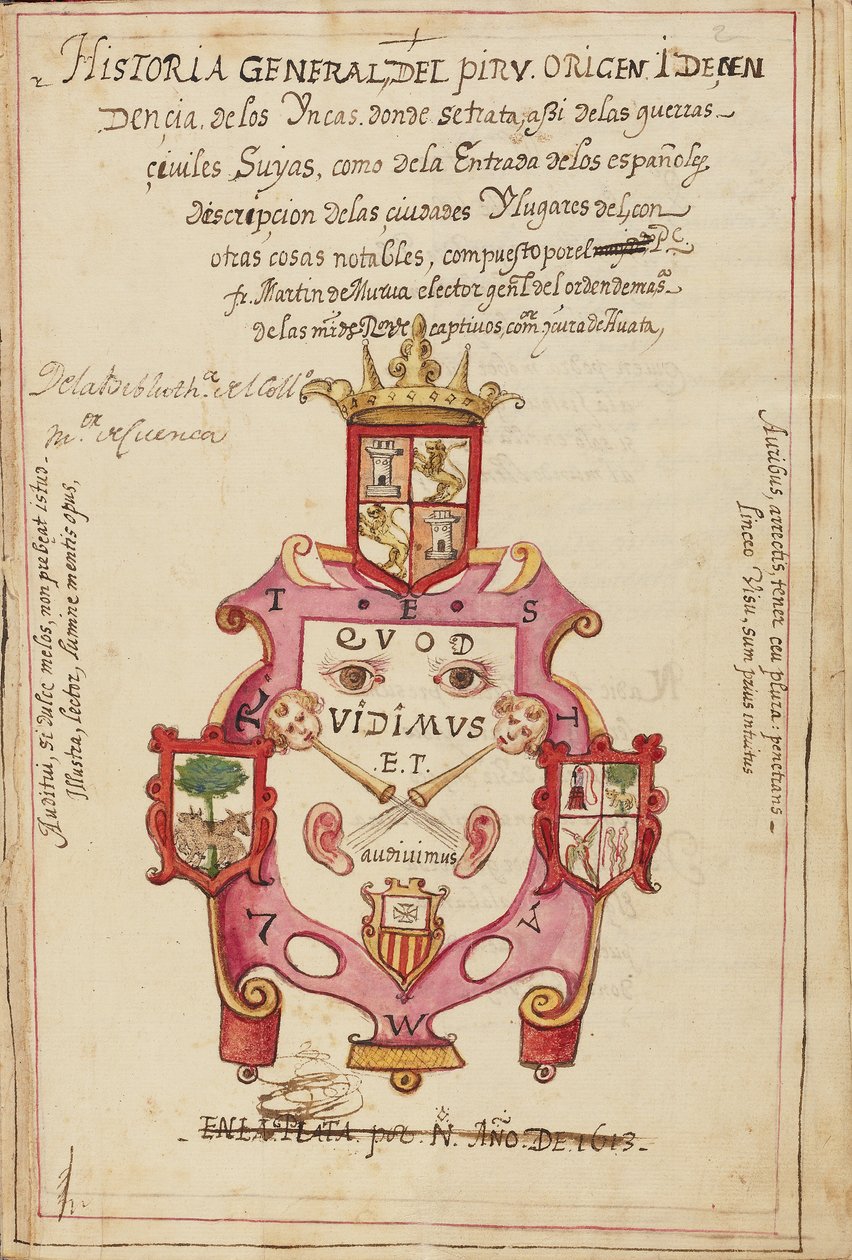 HISTORIA GENERAL, DEL PIRV. ORIGEN. I DEÇEN
DENÇIA. de los Yncas. donde se trata, aßi de las guerras
çiviles Suyas, como de la Entrada de los españoles
descripcion de las çiudades Y lugares del, con
otras cosas notables, compuesto por el P.e.
fr. Martin de Murua elector gen.l del orden de nra S.a
de las m.d de captivos, com.or y cura de Huata,
De la Biblioth.ca del Coll.o
m.or de Cuenca
Auditui, si dulce melos, non prebeat istud
Illustra, lector, lumine mentis opus,
Auribus, arrectis, tener ceu plura: penetrans
Linceo Visu, sum prius intuitus
T E S
R T
QVOD
VIDIMVS
.E.T.
audivimus
7 V
W
EN LA PLATA. por. N. AÑO. DE. 1613.
2